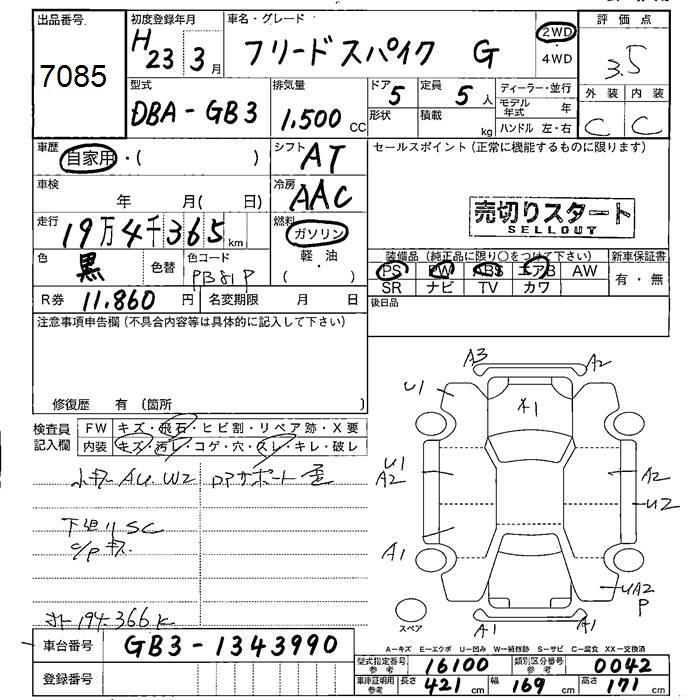 出品番号 初度登録年月 車名・グレード 評価点
7085 H23 3月 フリードスパイク G 2WD 4WD 3.5
外装 内装
C C
型式 排気量 ドア 定員 ディーラー・並行
DBA-GB3 1,500 CC 5 5人 モデル年式 年
形状 積載 kg ハンドル 左・右
車歴 自家用・( ) シフト AT セールスポイント(正常に機能するものに限ります)
車検 年 月( 日) 冷房 AAC
売切りスタート
SELLOUT
走行 19万4千365km 燃料 ガソリン
軽・油
( )
色 黒 色替 色コード PB81P
装備品(純正品に限り○をつけて下さい) 新車保証書
PS PW ABS エアB AW 有・無
SR ナビ TV カワ
R券 11,860円 名変期限 月 日 後日品
注意事項申告欄(不具合内容等は具体的に記入して下さい)
修復歴 有 (箇所 )
検査員記入欄 FW キズ・飛石・ヒビ割・リペア跡・X要
内装 キズ・汚レ・コゲ・穴・スレ・キレ・破レ
小キズ AU W2
下廻リSC
C/P キズ
194,366K
A3 A2
U1 A1
U1 A2
A2 U2
A1 UA2
P
A1 A1
スペア
A-キズ E-エクボ U-凹み W-補修跡 S-サビ C-腐食 XX-交換済
車台番号 GB3-1343990
型式指定番号 参考 16100 類別区分番号 参考 0042
登録番号
車体証明用 参考 長さ 421cm 幅 169cm 高さ 171cm